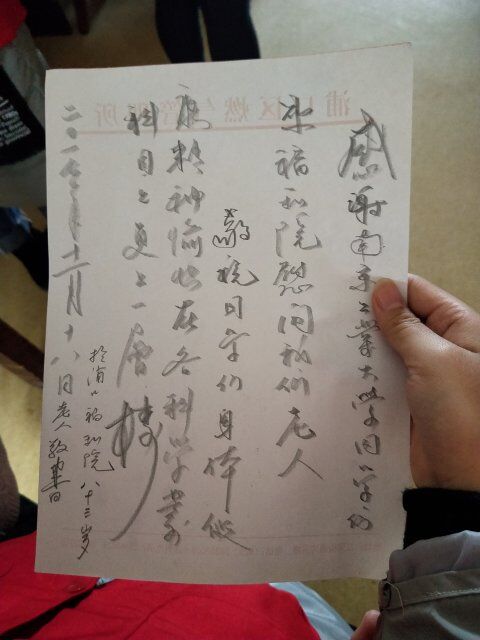 浦口区燃气管理所
感谢南京工业大学同学们
来福利院慰问我们老人
敬祝同学们身体健
康精神愉快在各科学业
科目上更上一层楼
于浦口福利院八十三岁
二〇一七年十二月十八日老人敬